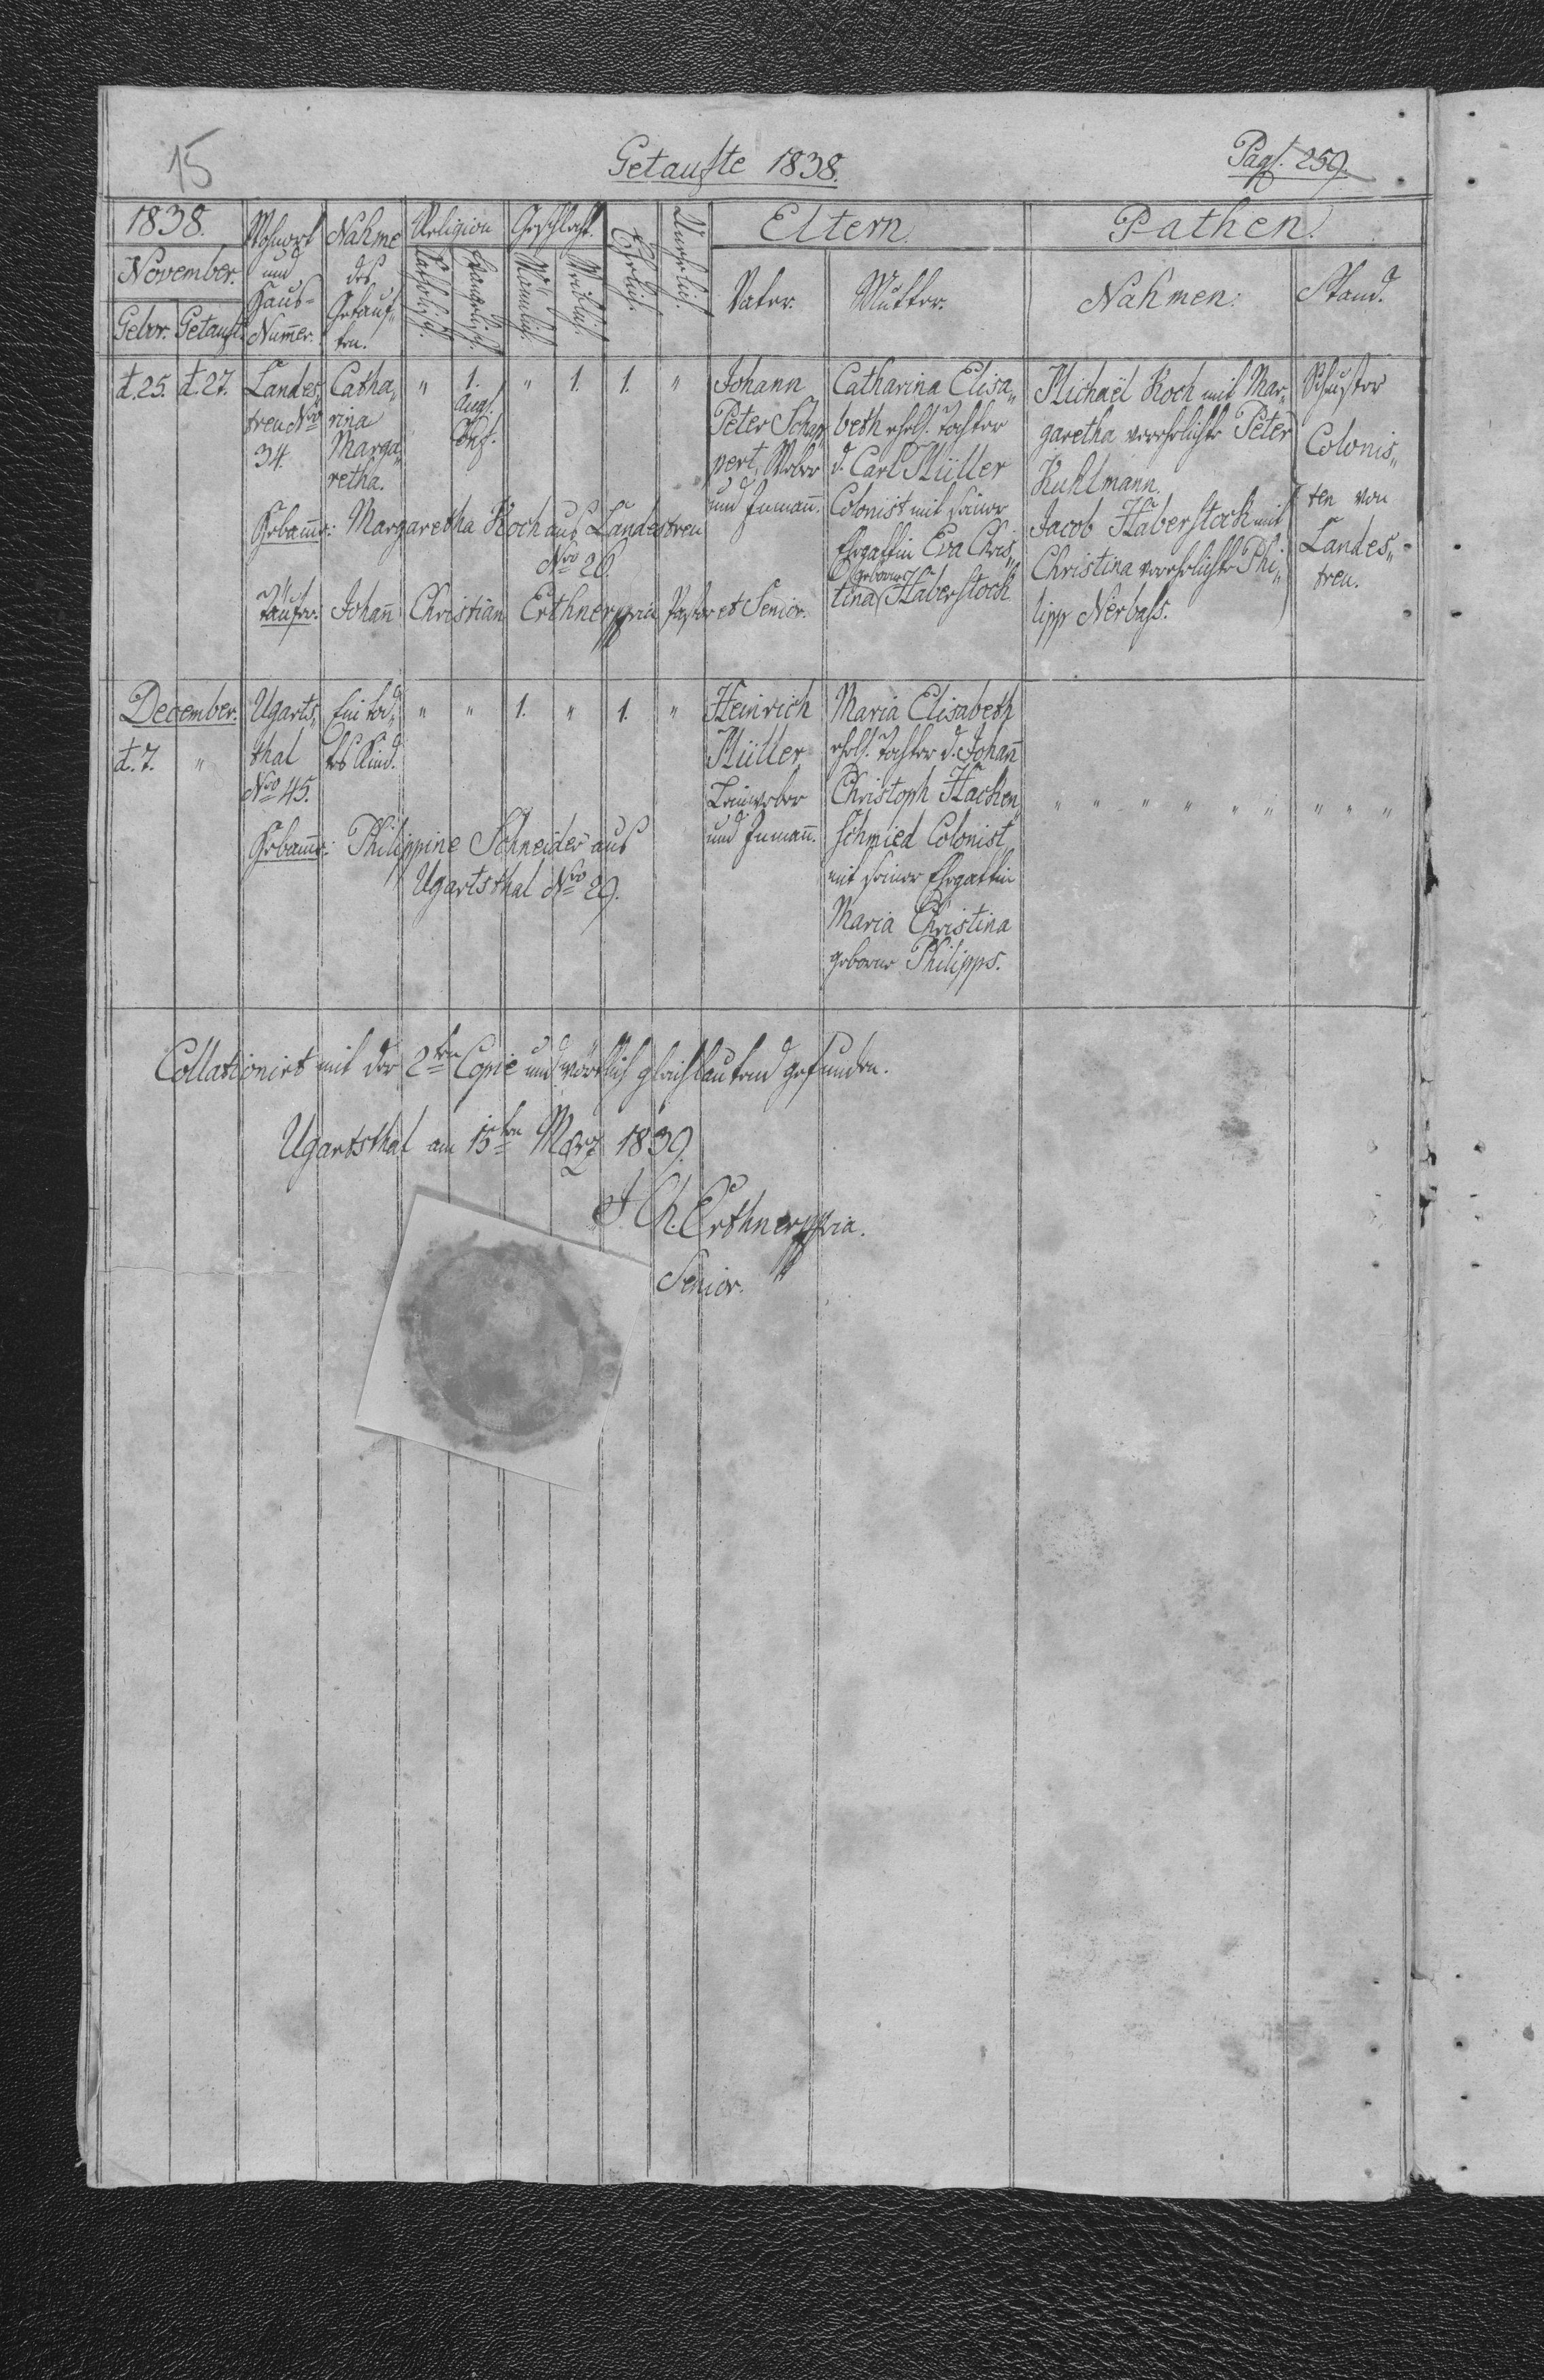 15
Getaufte 1838.
Pag. 259.
1838.
November.
Gebor. Getauft.
Wohnort
und
Haus-
Num̄er.
Nahme
des
Getauf-
ten.
Religion
Katholisch.
Evangelisch.
Geschlecht.
Mänlich.
Weiblich.
Ehelich.
Unehelich
Eltern.
Vater.
Mutter.
Pathen.
Nahmen.
Stand.
d. 25. d. 27.
Landes„
treu Nro
34.
Catha„
rina
Marga„
retha.
"
1.
Augs.
Conf.
"
1.
1.
"
Johann
Peter Schap
pert, Weber
und Inman̄.
Catharina Elisa„
beth ehel. Tochter
d. Carl Müller
Colonist mit seiner
Ehgattin Eva Chris„
tina geborne Haberstock
Michaël Koch mit Mar-
garetha verehlichte Peter
Kuhlmann.
Jacob Haberstock mit
Christina verehlichte Phi„
lipp Nerbass.
Schuster
Colonis„
ten von
Landes„
treu.
Hebam̄e: Margaretha Koch aus Landestreu
Nro 26.
Täufer: Johan̄ Christian Erthner ppria Pastor et Senior.
December.
d. 7. "
Ugarts„
thal
Nro 45.
Ein tod„
tes Kind.
" " 1. " 1. "
Heinrich
Müller
Leinweber
und Inman̄.
Maria Elisabeth
ehel. Tochter d. Johan̄
Christoph Hacken
schmied Colonist
mit seiner Ehgattin
Maria Christina
geborne Philipps.
" " " " " " " " "
Hebam̄e: Philippine Schneider aus
Ugartsthal Nro 29.
Collationirt mit der 2ten Copie und wörtlich gleichlautend gefunden.
Ugartsthal am 15ten März 1839.
J. Ch. Erthner ppria.
Senior.